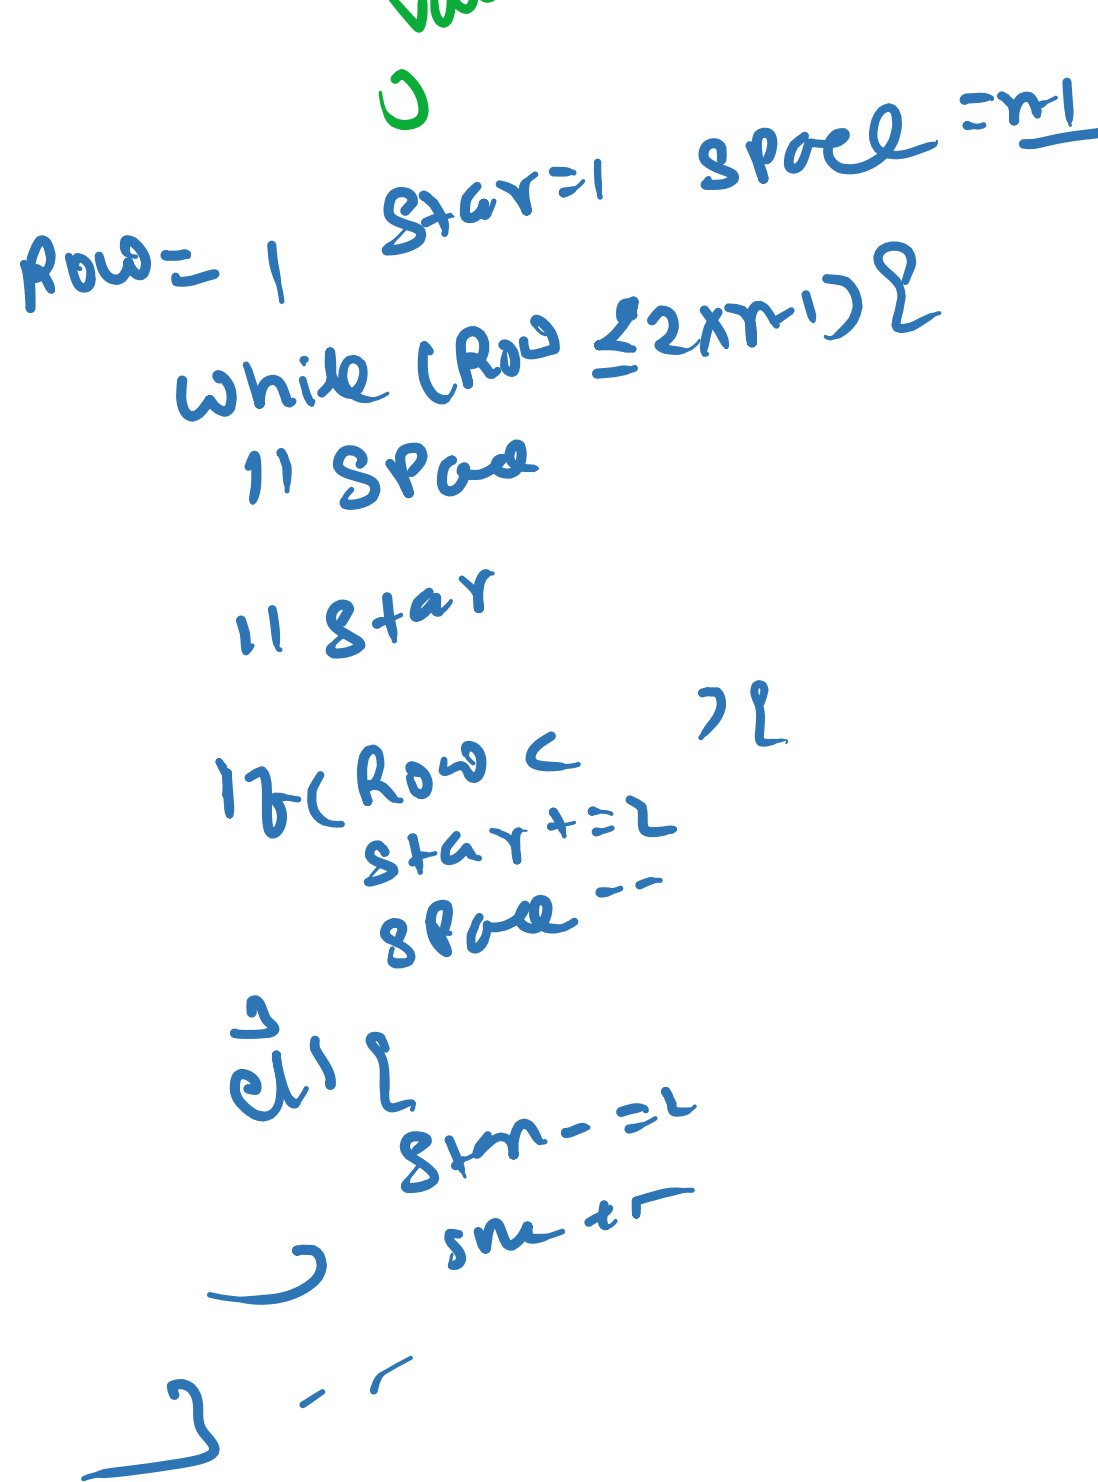 Row = 1 star=1 space = n-1
while (Row ≤ 2xn-1) {
// space
// star
if ( Row < ) {
star += 2
space --
}
els {
star - = 2
}
}